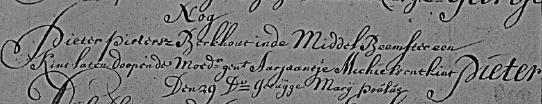 Nog
Pieter Pietersz Berkhout inde Middel Beemster een
Kint laten doopen de Moedr gent Aarjaantje Michiels ent kint Pieter
Den 29 Do Getuijge Marij Poulus